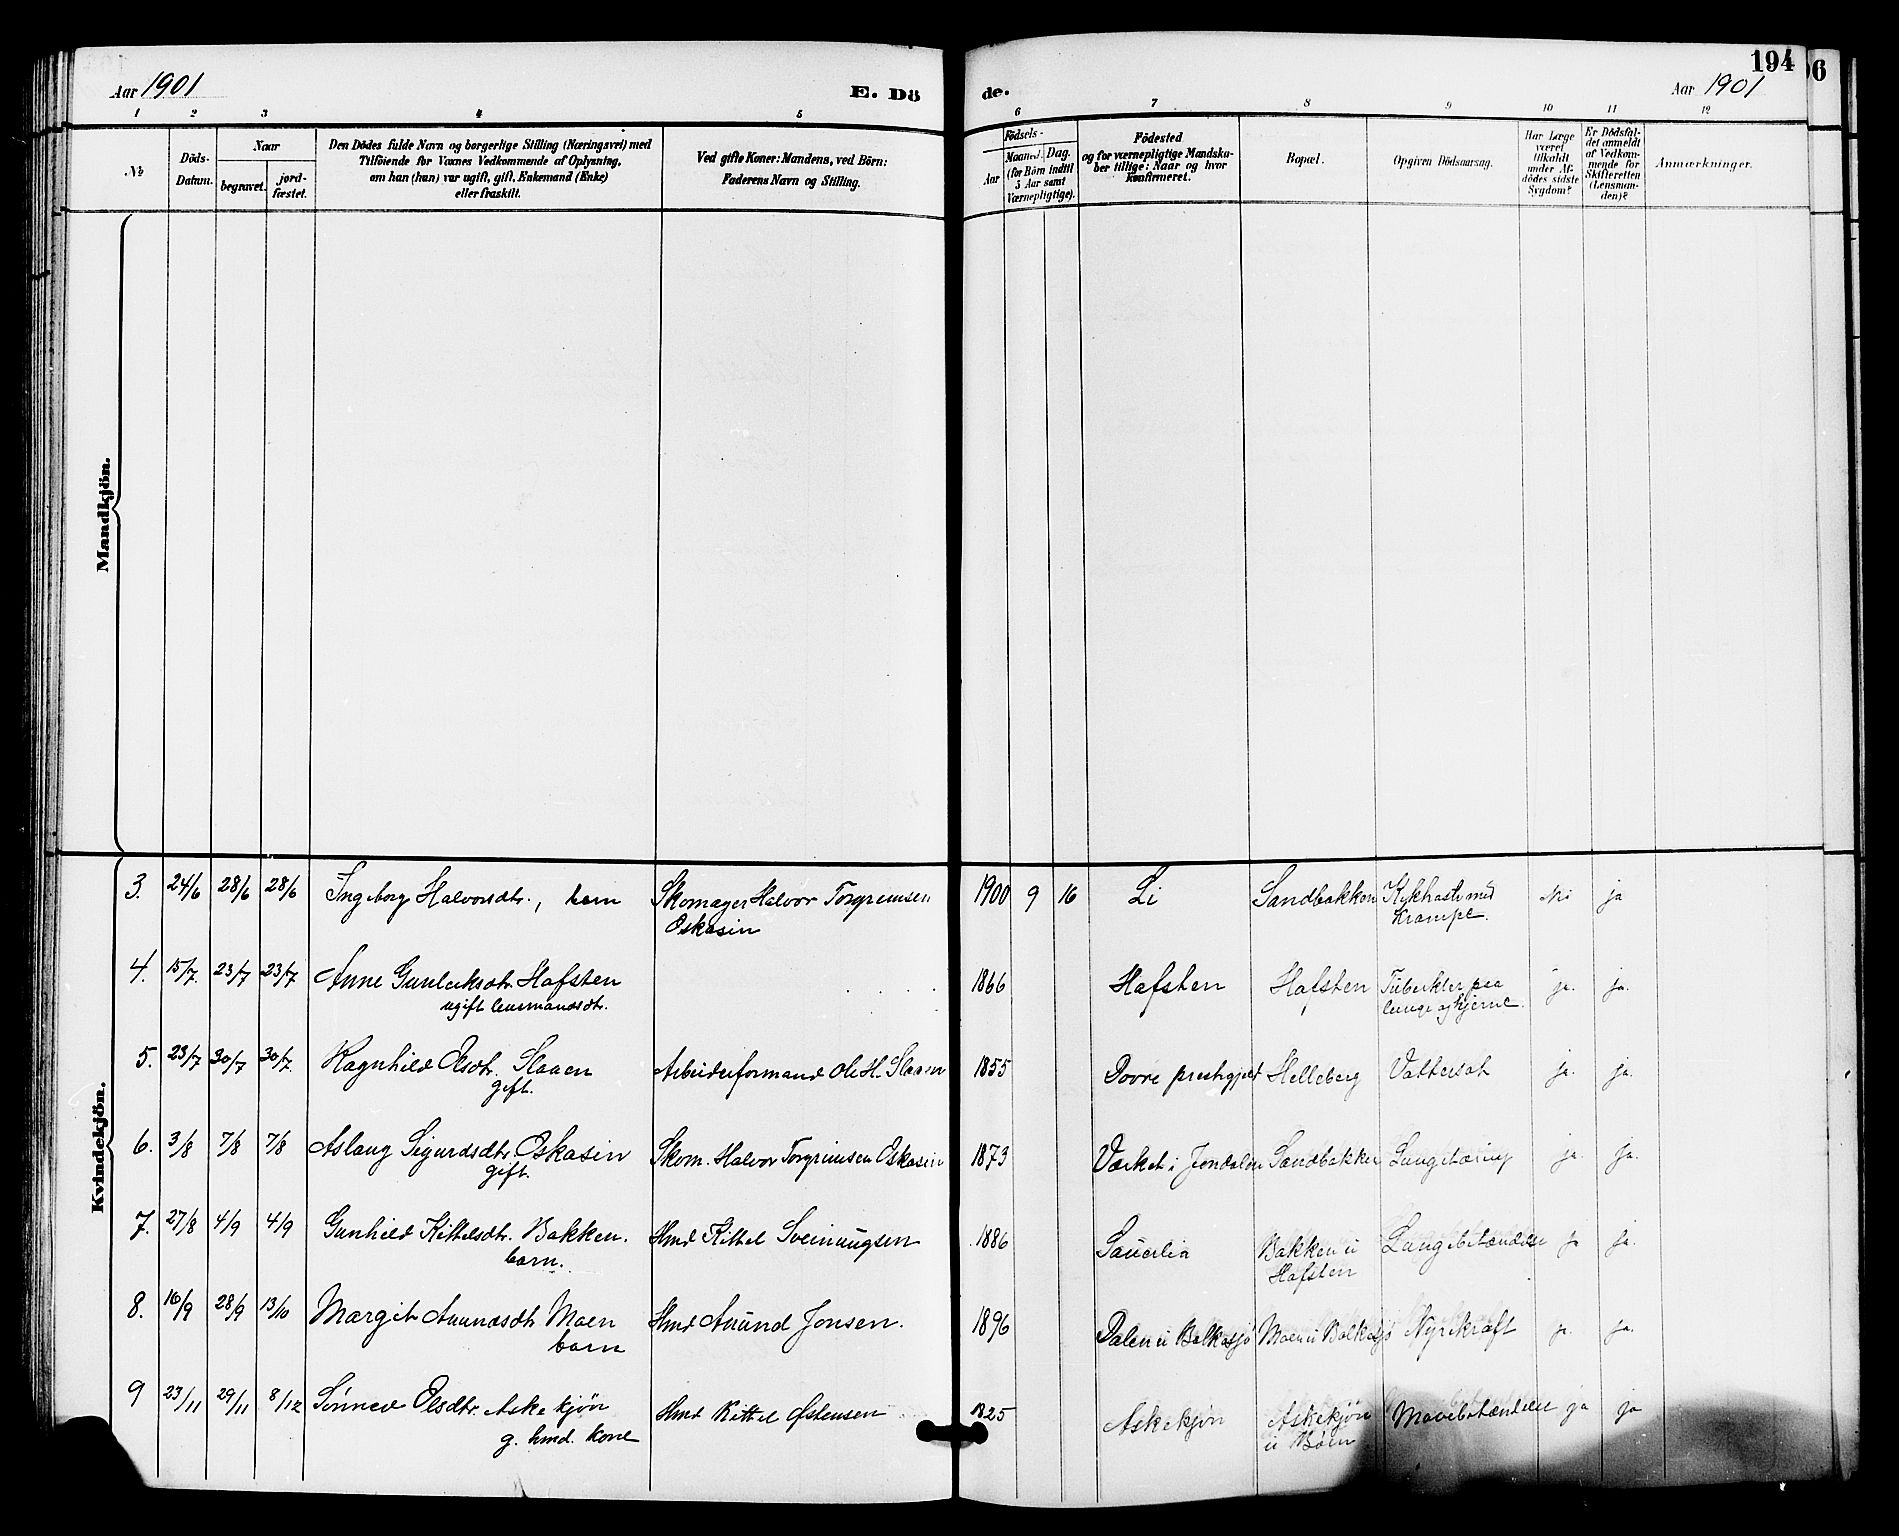 Aar 1901
E. Dö
de.
194
Aar 1901
06
1 2 3 4 5 6 7 8 9 10 11 12
№
Döds-
Datum.
Naar
begravet.
jord-
fæstet.
Den Dödes fulde Navn og borgerlige Stilling (Næringsvei) med
Tilföiende for Voxnes Vedkommende af Oplysning,
om han (hun) var ugift, gift, Enkemand (Enke)
eller fraskilt.
Ved gifte Koner: Mandens, ved Börn:
Faderens Navn og Stilling.
Födsels-
Aar
Maaned.
Dag.
(for Börn indtil
5 Aar samt
Værnepligtige).
Födested
og for værnepligtige Mandska-
ber tillige: Naar og hvor
konfirmeret.
Bopæl.
Opgiven Dödsaarsag.
Har Læge
været
tilkaldt
under Af-
dödes sidste
Sygdom?
Er Dödsfal-
det anmeldt
af Vedkom-
mende for
Skifteretten
(Lensman-
den)?
Anmærkninger.
Mandkjön.
Kvindekjön.
3. 24/6 28/6 28/6 Ingeborg Halvorsdtr., barn Skomager Halvor Torgrimsen 1900 9 16 Li Sandbakken Kikhoste med nei ja
Oskasin Krampe.
4. 15/7. 23/7 23/7 Anne Gunleiksdtr. Hafsten 1866 Hafsten Hafsten Tuberkler paa ja. ja.
ugift lensmandsdtr. lunge og hjerne.
5. 23/7 30/7 30/7. Ragnhild Olsdtr. Slaaen Arbeiderformand Ole H. Slaaen 1855 Dovre prestegjeld Helleberg Vattersot ja. ja.
gift.
6. 3/8 7/8 7/8 Aslaug Sigurdsdtr. Oskasin Skom. Halvor Torgrimsen Oskasin 1873 Værket i Jondalen Sandbakken Lungetæring ja. ja.
gift.
7. 27/8 4/9 4/9 Gunhild Kittelsdtr. Bakken. Hmd Kittel Sveinungsen 1886 Sauerlia Bakken u Lungebetændelse ja ja.
barn. Hafsten
8. 16/9 28/9 13/10 Margit Amundsdtr. Moen Hmd Amund Jonsen. 1896 Dalen u Bolkesjø Moen u Bolkesjø Nyrekræft ja. ja.
barn
9 23/11 29/11 8/12 Sønnev Olsdtr. Askekjøn Hmd Kittel Østensen 1825 Askekjøn Askekjøn Mavebetændelse ja ja
g. hmd. kone u Bøen